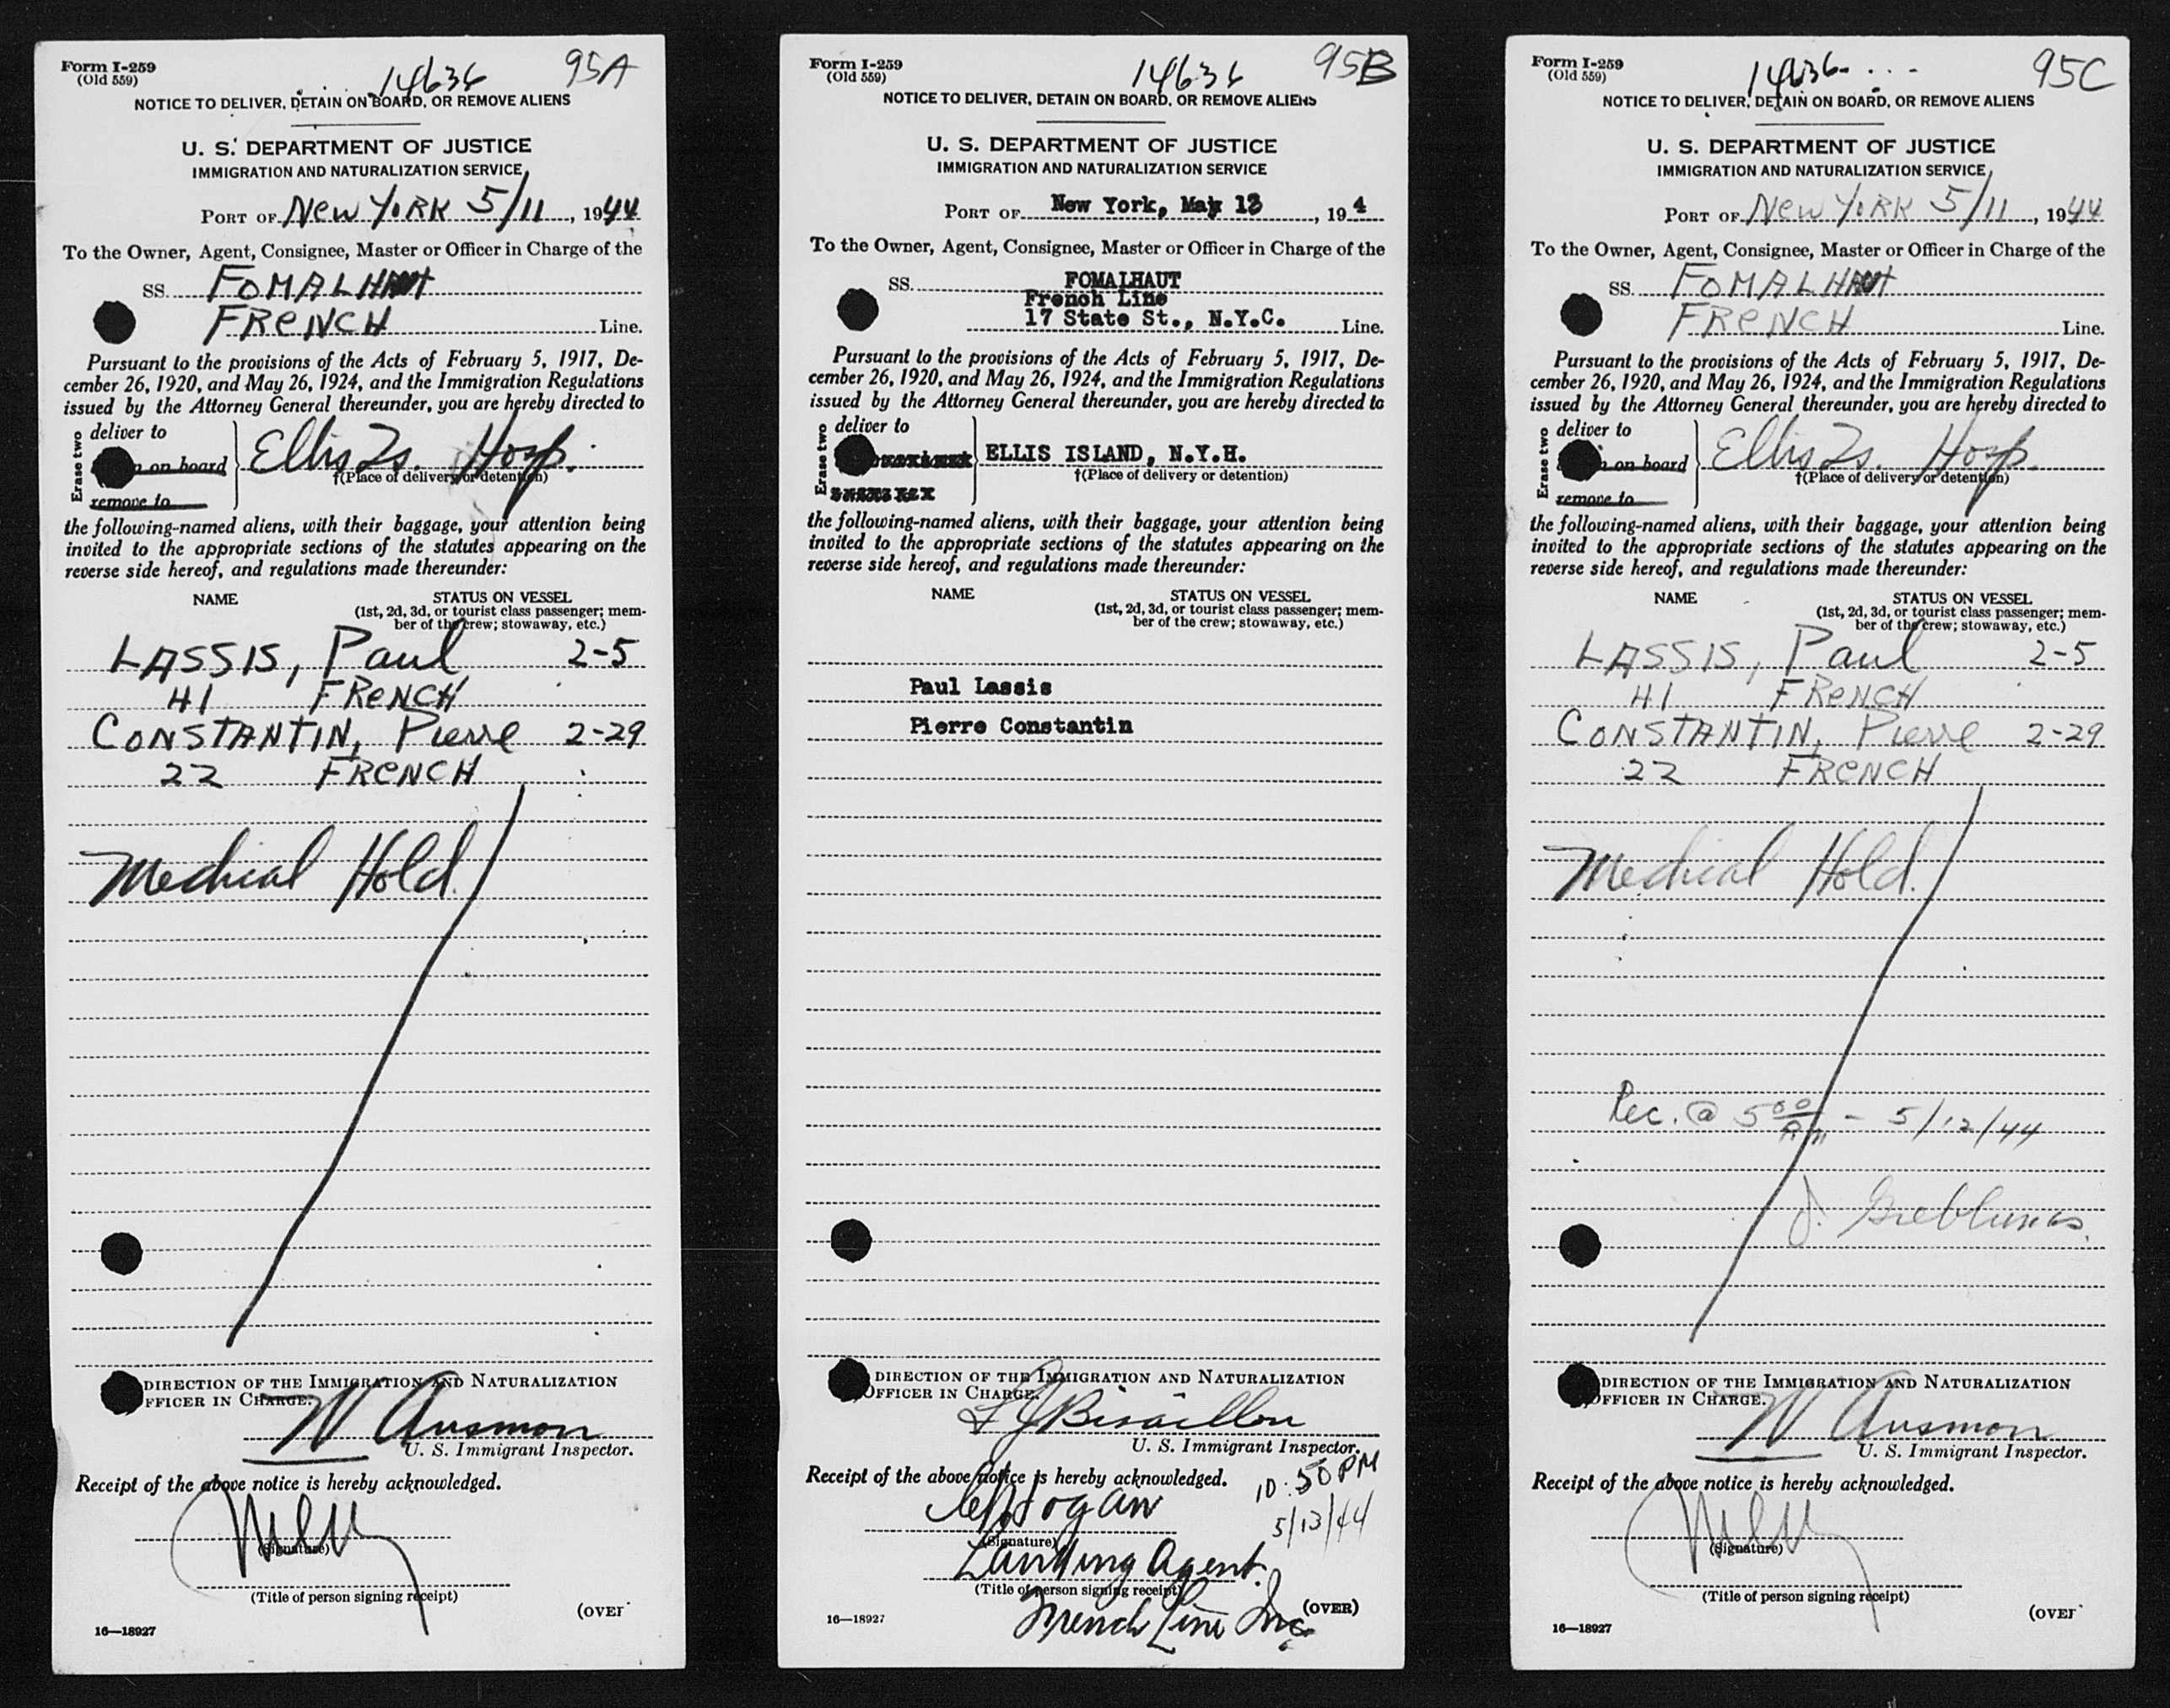 Form I-259
(Old 559)
14636
95A
NOTICE TO DELIVER, DETAIN ON BOARD, OR REMOVE ALIENS
U. S. DEPARTMENT OF JUSTICE
IMMIGRATION AND NATURALIZATION SERVICE
PORT OF New York 5/11, 1944
To the Owner, Agent, Consignee, Master or Officer in Charge of the
SS. FOMALHAUT
FRENCH Line.
Pursuant to the provisions of the Acts of February 5, 1917, De-
cember 26, 1920, and May 26, 1924, and the Immigration Regulations
issued by the Attorney General thereunder, you are hereby directed to
Erase two
deliver to
n on board
remove to
Ellis Is. Hosp.
†(Place of delivery or detention)
the following-named aliens, with their baggage, your attention being
invited to the appropriate sections of the statutes appearing on the
reverse side hereof, and regulations made thereunder:
NAME
STATUS ON VESSEL
(1st, 2d, 3d, or tourist class passenger; mem-
ber of the crew; stowaway, etc.)
LASSIS, Paul 2-5
41 FRENCH
CONSTANTIN, Pierre 2-29
22 FRENCH
Medical Hold.
DIRECTION OF THE IMMIGRATION AND NATURALIZATION
FFICER IN CHARGE.
W Ausmon
U. S. Immigrant Inspector.
Receipt of the above notice is hereby acknowledged.
(Signature)
(Title of person signing receipt)
(OVER
16—18927
Form I-259
(Old 559)
14636
95B
NOTICE TO DELIVER, DETAIN ON BOARD, OR REMOVE ALIENS
U. S. DEPARTMENT OF JUSTICE
IMMIGRATION AND NATURALIZATION SERVICE
PORT OF New York, May 13, 19 4
To the Owner, Agent, Consignee, Master or Officer in Charge of the
SS. FOMALHAUT
French Line
17 State St., N.Y.C. Line.
Pursuant to the provisions of the Acts of February 5, 1917, De-
cember 26, 1920, and May 26, 1924, and the Immigration Regulations
issued by the Attorney General thereunder, you are hereby directed to
Erase two
deliver to
ELLIS ISLAND, N.Y.H.
†(Place of delivery or detention)
the following-named aliens, with their baggage, your attention being
invited to the appropriate sections of the statutes appearing on the
reverse side hereof, and regulations made thereunder:
NAME
STATUS ON VESSEL
(1st, 2d, 3d, or tourist class passenger; mem-
ber of the crew; stowaway, etc.)
Paul Lassis
Pierre Constantin
DIRECTION OF THE IMMIGRATION AND NATURALIZATION
OFFICER IN CHARGE.
U. S. Immigrant Inspector.
Receipt of the above notice is hereby acknowledged.
10:50 PM
5/13/44
(Signature)
Landing Agent.
(Title of person signing receipt)
French Line Inc.
(OVER)
16—18927
Form I-259
(Old 559)
14636
95C
NOTICE TO DELIVER, DETAIN ON BOARD, OR REMOVE ALIENS
U. S. DEPARTMENT OF JUSTICE
IMMIGRATION AND NATURALIZATION SERVICE
PORT OF New York 5/11, 1944
To the Owner, Agent, Consignee, Master or Officer in Charge of the
SS. FOMALHAUT
FRENCH Line.
Pursuant to the provisions of the Acts of February 5, 1917, De-
cember 26, 1920, and May 26, 1924, and the Immigration Regulations
issued by the Attorney General thereunder, you are hereby directed to
Erase two
deliver to
n on board
remove to
Ellis Is. Hosp.
†(Place of delivery or detention)
the following-named aliens, with their baggage, your attention being
invited to the appropriate sections of the statutes appearing on the
reverse side hereof, and regulations made thereunder:
NAME
STATUS ON VESSEL
(1st, 2d, 3d, or tourist class passenger; mem-
ber of the crew; stowaway, etc.)
LASSIS, Paul 2-5
41 FRENCH
CONSTANTIN, Pierre 2-29
22 FRENCH
Medical Hold.
Rec. @ 5 00 AM - 5/12/44
DIRECTION OF THE IMMIGRATION AND NATURALIZATION
OFFICER IN CHARGE.
W Ausmon
U. S. Immigrant Inspector.
Receipt of the above notice is hereby acknowledged.
(Signature)
(Title of person signing receipt)
(OVER
16—18927